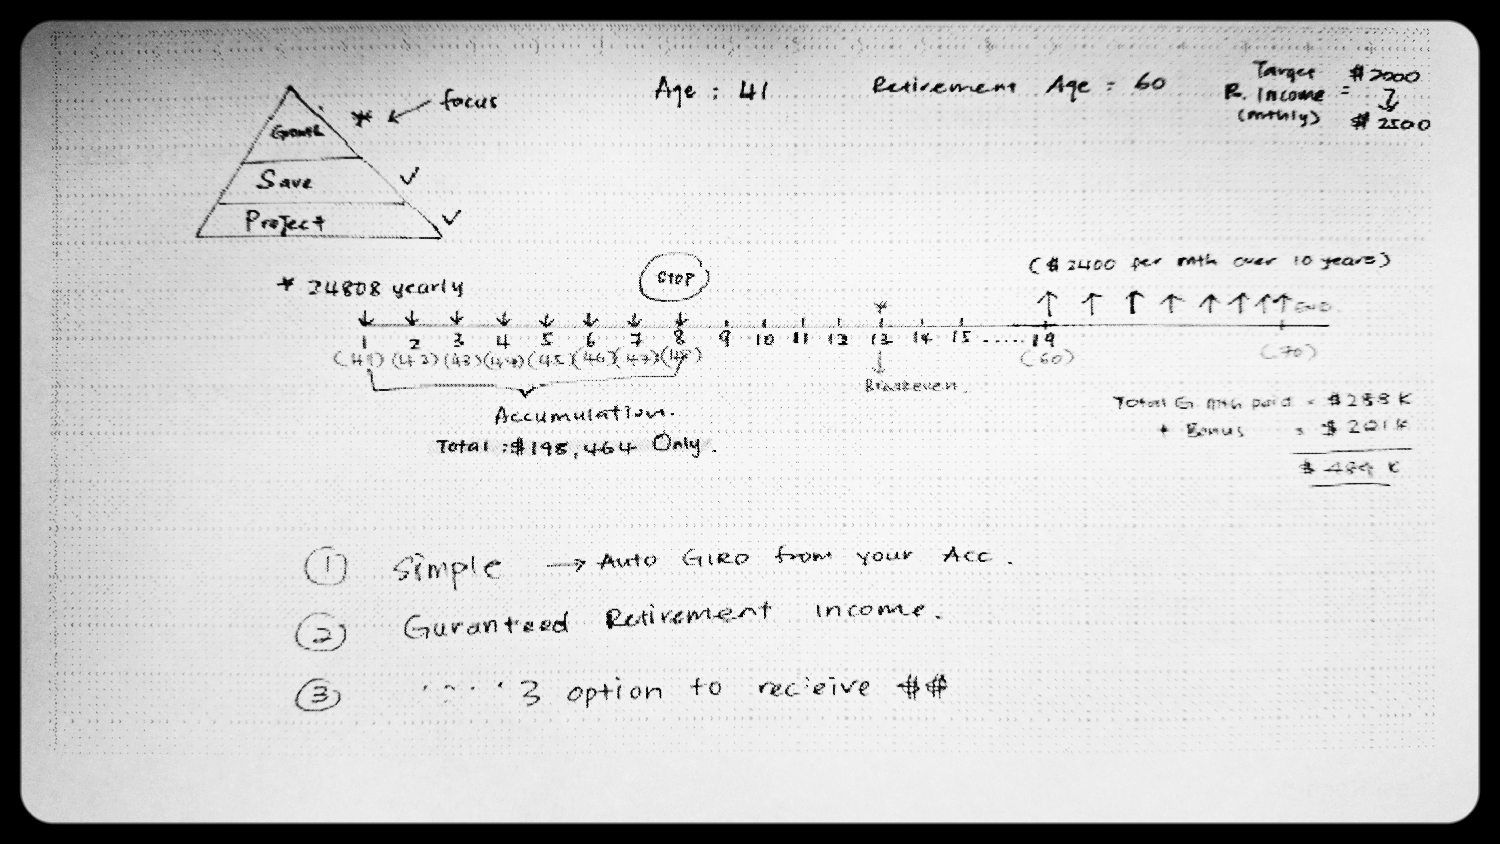 Age : 41
Retirement Age = 60
Target $2000
R. Income =
(mthly) $2500
Growth
focus
Save
Protect
* 24808 yearly
STOP
($2400 per mth over 10 years)
1 2 3 4 5 6 7 8 9 10 11 12 13 14 15 ..... 19
END
(41) (42) (43) (44) (45) (46) (47) (48) (60) (70)
Breakeven.
Accumulation.
Total : $198,464 Only.
Total G. mth paid = $288 K
+ Bonus = $201 K
$489 K
1 Simple → Auto GIRO from your Acc.
2 Guranteed Retirement income.
3 3 option to recieive $$